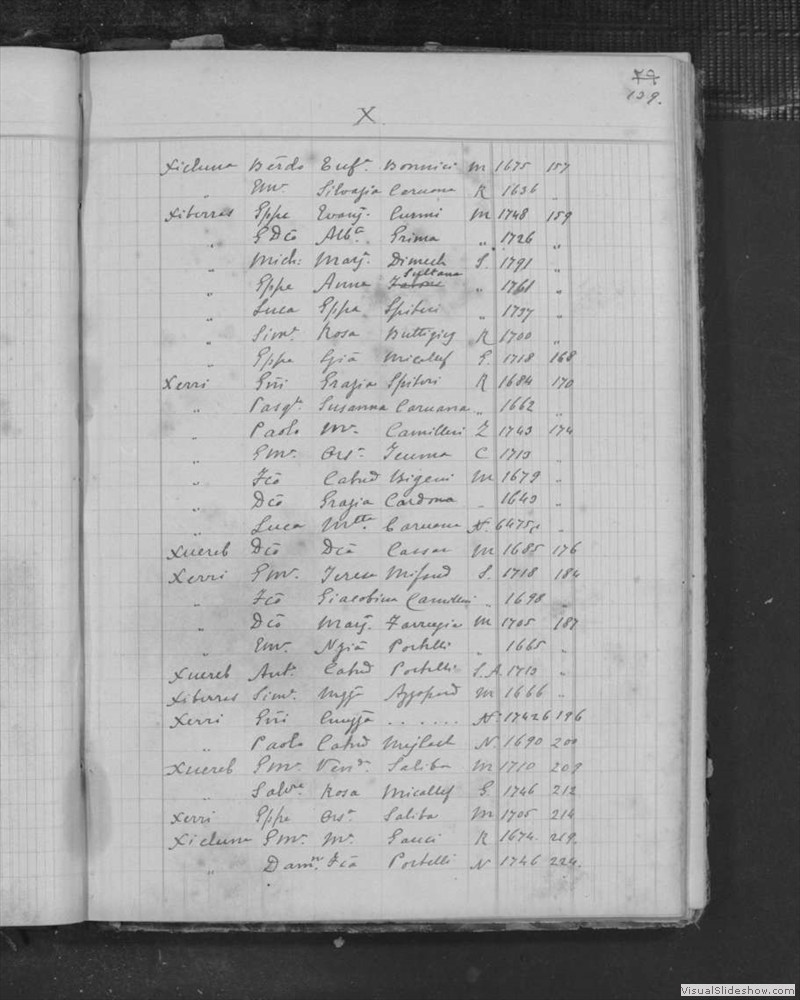 79
139.
X.
Xicluna Bērdo Eufª. Bonnici M 1675 157
„ Emᵉ. Silvagia Caruana R 1636 „
Xiberras Gppe Evanj. Curmi M 1748 159
„ GDcō Albª. Grima „ 1726 „
„ Mich: Marj. Dimech S. 1791 „
Sultana
„ Gppe Anna „ 1761 „
„ Luca Gppa Spiteri „ 1737 „
„ Simᵉ. Rosa Buttigieg R 1700 „
„ Gppe Gjā Micallef G. 1718 168
Xerri Gñi Grazia Spiteri R 1684 170
„ Pasqᵉ. Susanna Caruana „ 1662 „
„ Paolo Mª. Camilleri Z 1743 174
„ Emᵉ. Orsª. Teuma C 1713 „
„ Fcō Catnᵈ M 1679 „
„ Dcō Grazia Cardona „ 1643 „
„ Luca Mᵗᵗᵃ Caruana „
Xuereb Dcō Dcā Cassar M 1685 176
Xerri Emᵉ. Teresa Mifsud S. 1718 184
„ Fcō Giacobina Camilleri „ 1698 „
„ Dcō Marj. Farrugia M 1705 187
„ Emᵉ. Ngiā Portelli „ 1665 „
Xuereb Antᵒ. Catnᵈ Portelli S.A. 1713 „
Xiberras Simᵉ. Azzopard M 1666 „
Xerri Gñi ....... 1742 196
„ Paolo Catnᵈ Mejlach N. 1690 200
Xuereb Emᵉ. Venᵃ. Saliba M 1710 209
„ Salvʳᵉ Rosa Micallef G 1746 212
Xerri Gppe Orsª Saliba M 1705 214
Xicluna Emᵉ. Mª. Gauci R 1674. 219.
„ Damⁿᵒ. Fcā Portelli N 1746 224.
VisualSlideshow.com